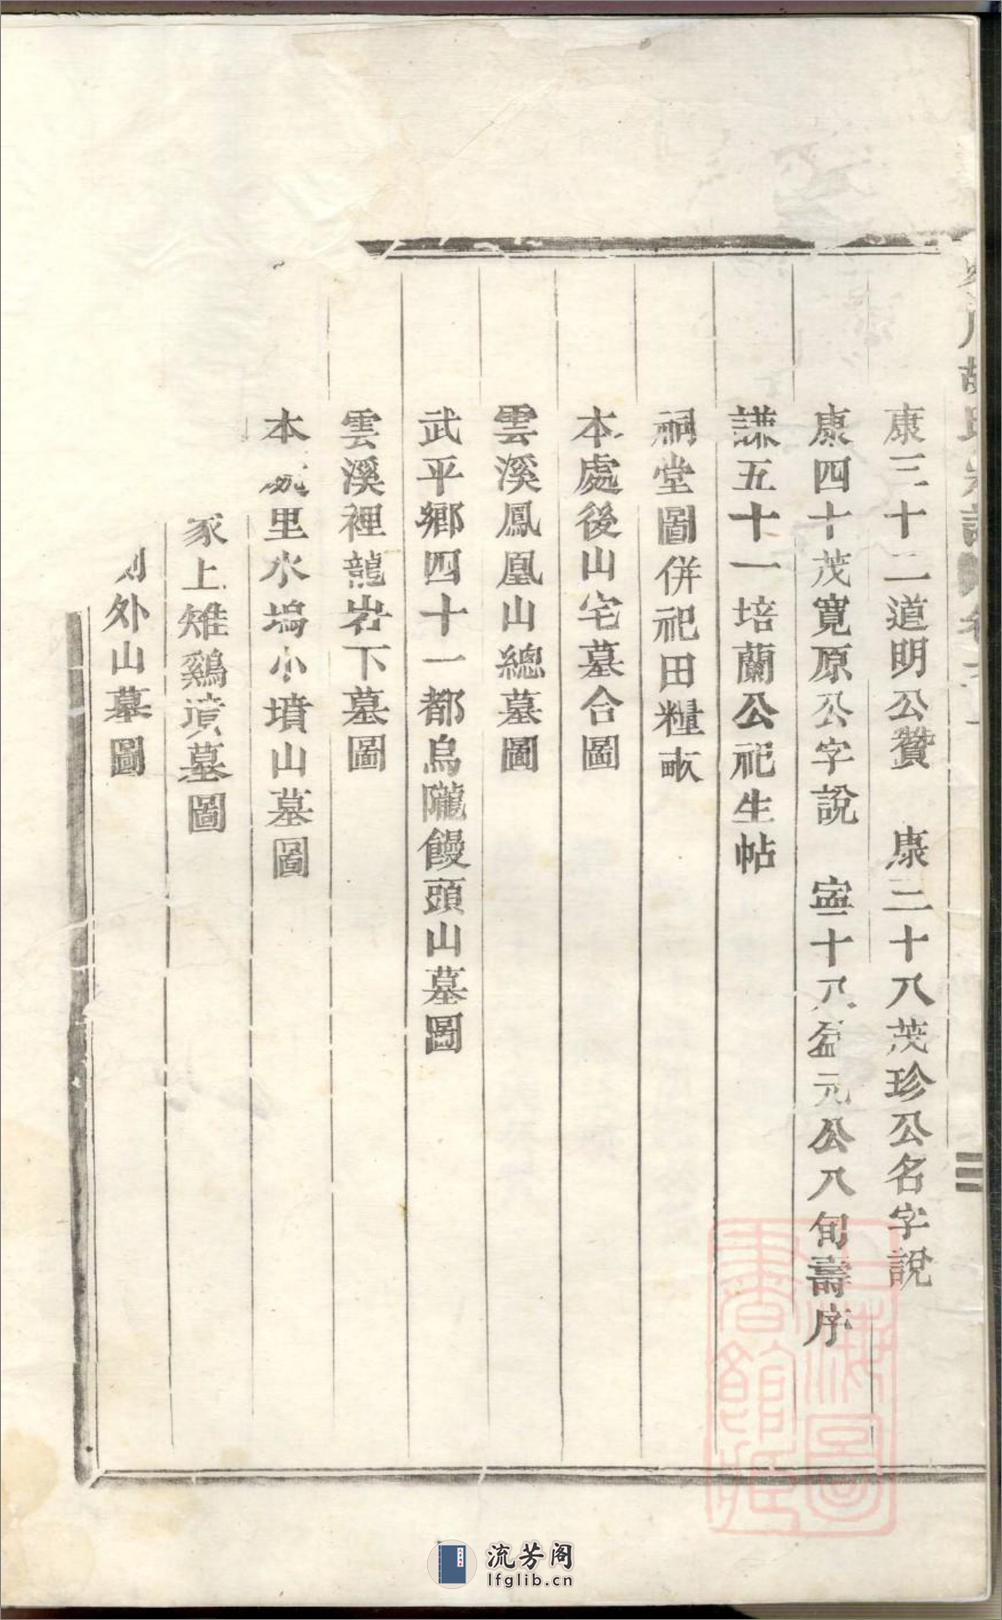 康三十二道明公贊 康三十八茂珍公名字說
康四十茂寬原公字說 寍二十八益元公八旬壽序
謙五十一培蘭公祀生帖
祠堂圖併祀田糧畝
本處後山宅墓合圖
雲溪鳳凰山總墓圖
武平鄉四十一都烏隴饅頭山墓圖
雲溪裡龍岩下墓圖
本處里水塢小墳山墓圖
冢上雉鷄墳墓圖
外山墓圖
胡氏宗譜
上海圖書館藏
流芳阁
lfglib.cn